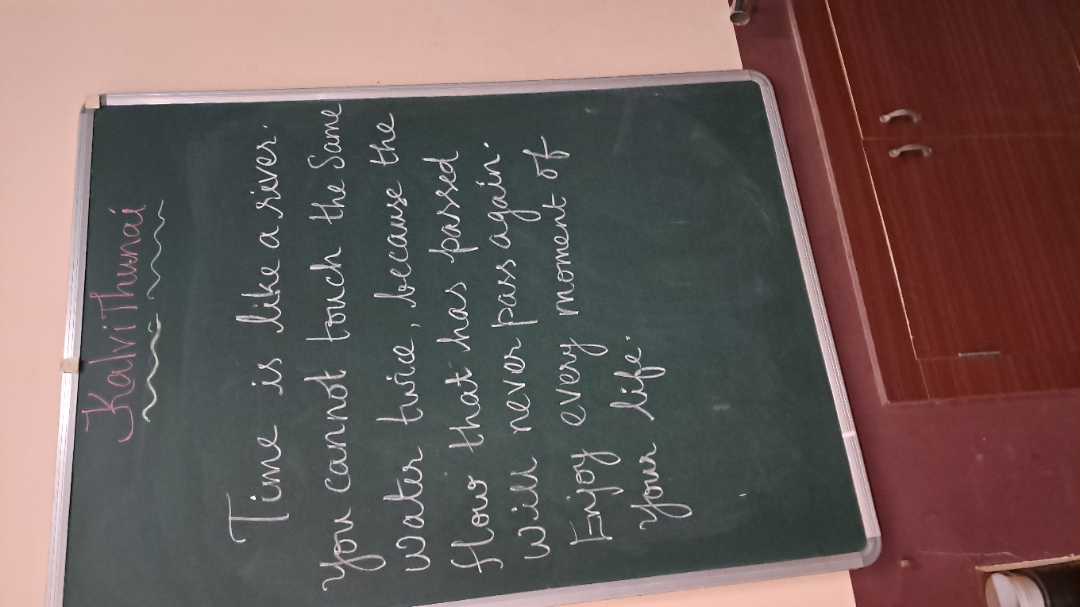 Kalvi Thunai
Time is like a river.
you cannot touch the Same
water twice, because the
flow that has passed
Will never pass again.
Enjoy every moment of
your life.